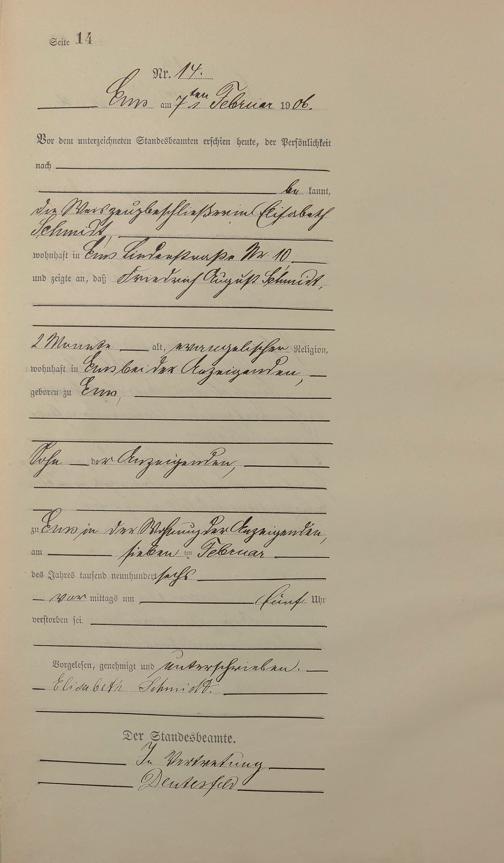 Seite 14
Nr. 14.
Ems am 7ten Februar 1906.
Vor dem unterzeichneten Standesbeamten erschien heute, der Persönlichkeit
nach
be kannt,
die Elisabeth
Schmidt,
wohnhaft in Ems Lindenstraße Nr 10
und zeigte an, daß Friedrich August Schmidt,
2 Monate alt, evangelischer Religion,
wohnhaft in Ems bei der Anzeigenden,
geboren zu Ems,
Sohn der Anzeigenden,
zu Ems, in der Wohnung der Anzeigenden,
am sieben ten Februar
des Jahres tausend neunhundert sechs
vor mittags um fünf Uhr
verstorben sei.
Vorgelesen, genehmigt und unterschrieben.
Elisabeth Schmidt.
Der Standesbeamte.
In Vertretung